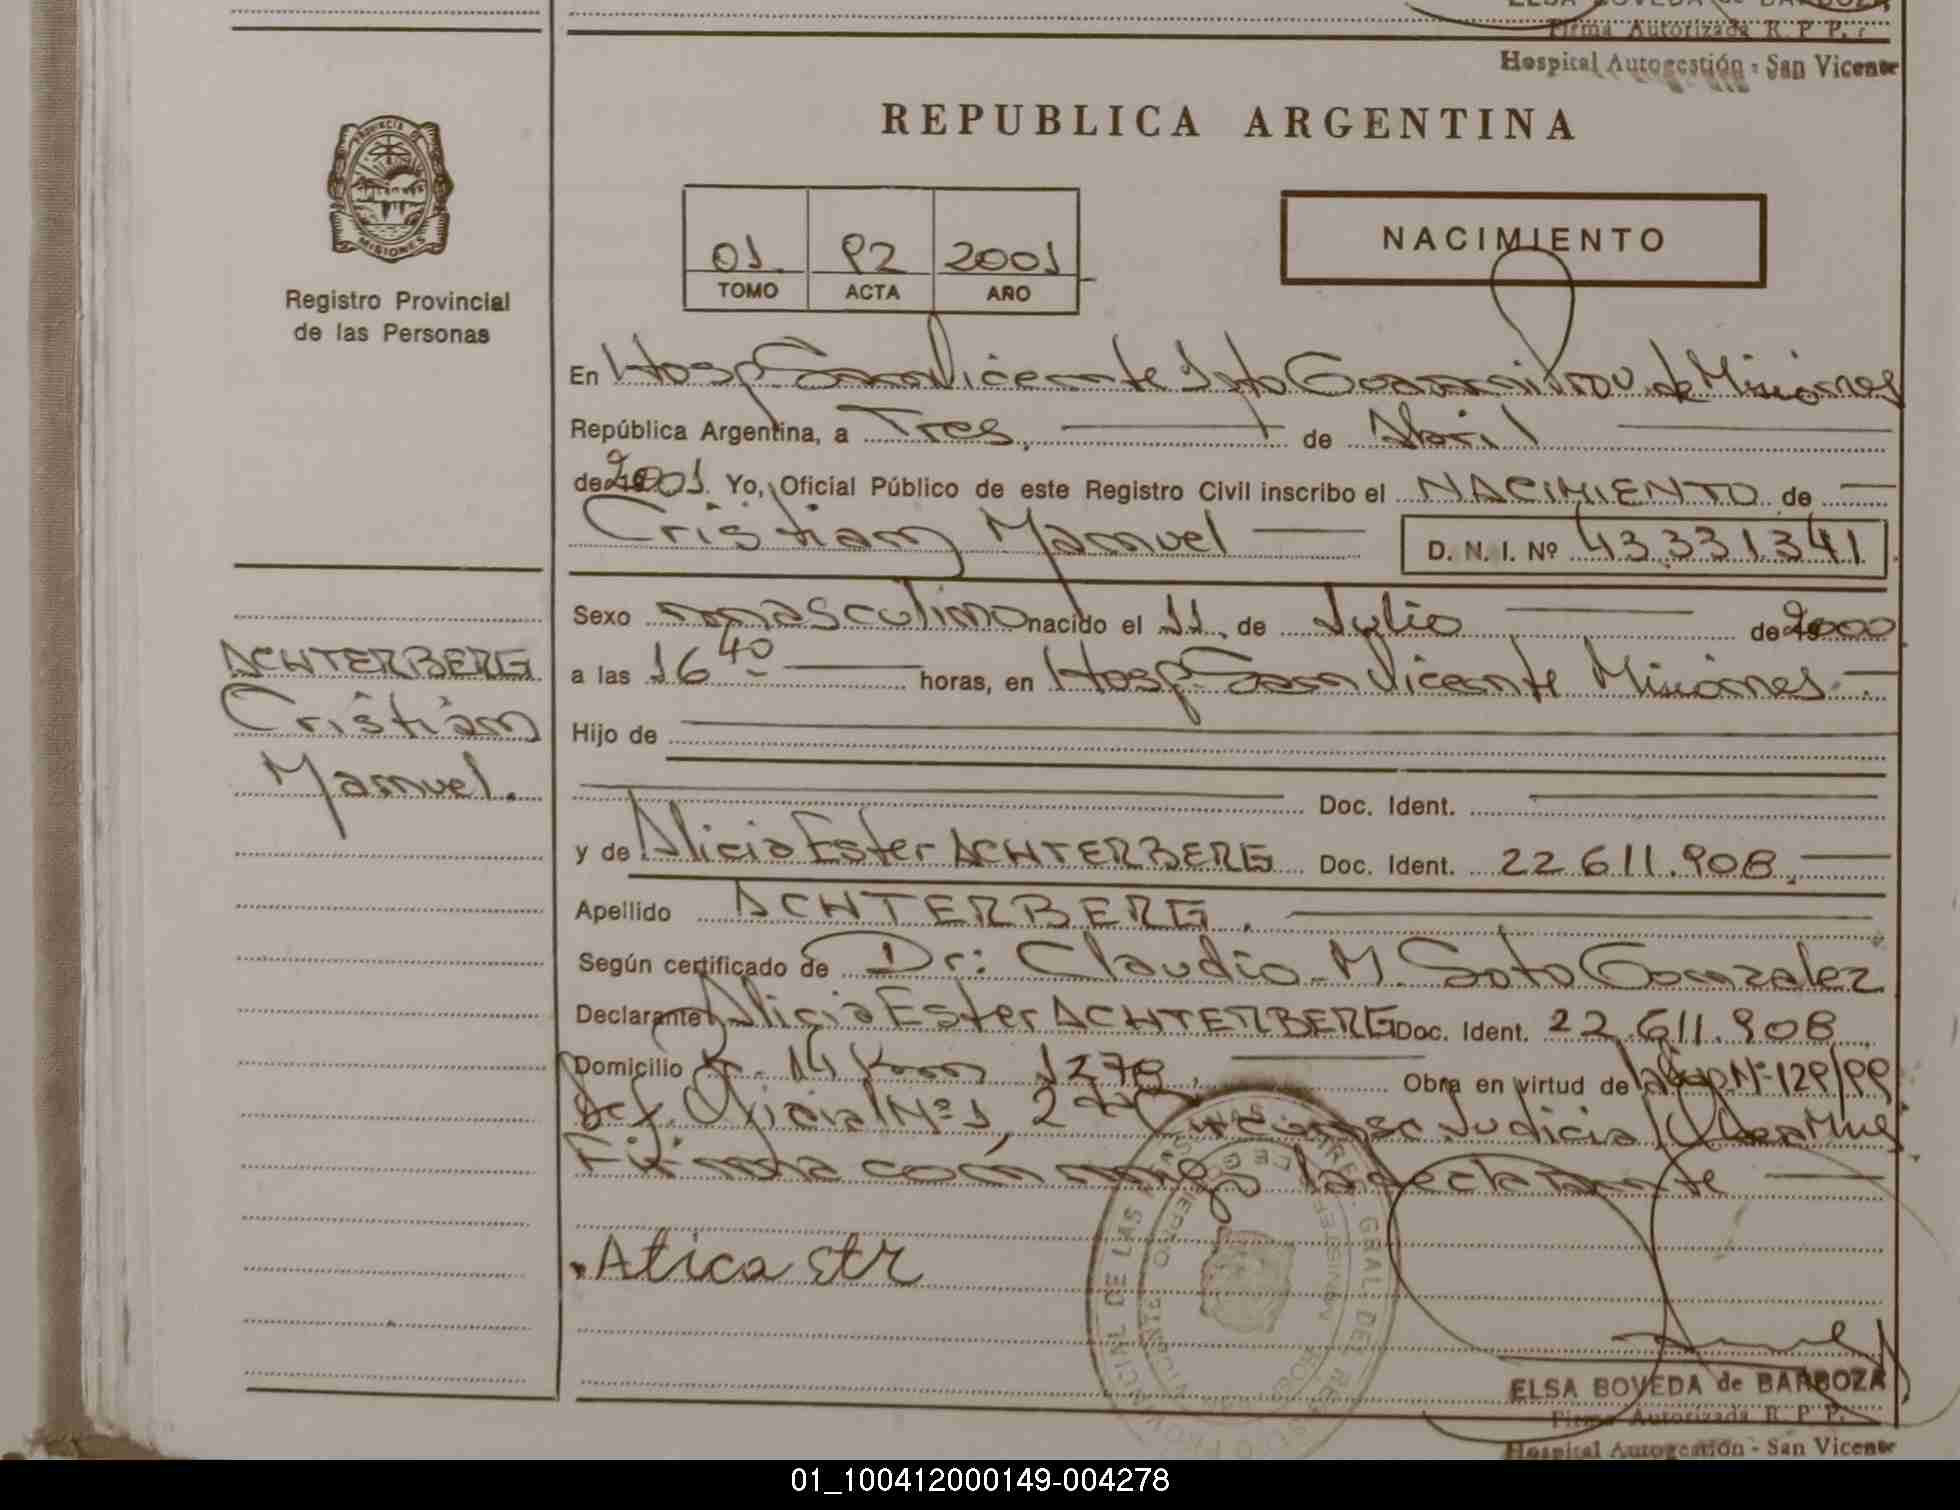 ELSA BOVEDA de BARBOZA
Firma Autorizada R. P. P.
Hospital Autogestión - San Vicente
REPUBLICA ARGENTINA
PROVINCIA DE
MISIONES
Registro Provincial
de las Personas
01 92 2001
TOMO ACTA AÑO
NACIMIENTO
En Hosp San Vicente Dpto Guarani Prov. de Misiones
República Argentina, a Tres, de Abril
de 2001. Yo, Oficial Público de este Registro Civil inscribo el NACIMIENTO de
Cristian Manuel D. N. I. Nº 43.331.341
Sexo masculino nacido el 11 de Julio de 2000
a las 16 40 horas, en Hosp. San Vicente Misiones.
Hijo de
Doc. Ident.
y de Alicia Ester ACHTERBERG Doc. Ident. 22.611.908.
Apellido ACHTERBERG.
Según certificado de Dr: Claudio M. Soto Gonzalez
Declarante Alicia Ester ACHTERBERG Doc. Ident. 22.611.908
Domicilio 14 Km 1279, Obra en virtud de la Nº 129/99
Def. Oficial Nº 1, 2 Judicial
Firma conmigo la declarante
ACHTERBERG
Cristian
Manuel.
ELSA BOVEDA de BARBOZA
Firma Autorizada R. P. P.
Hospital Autogestión - San Vicente
01_100412000149-004278